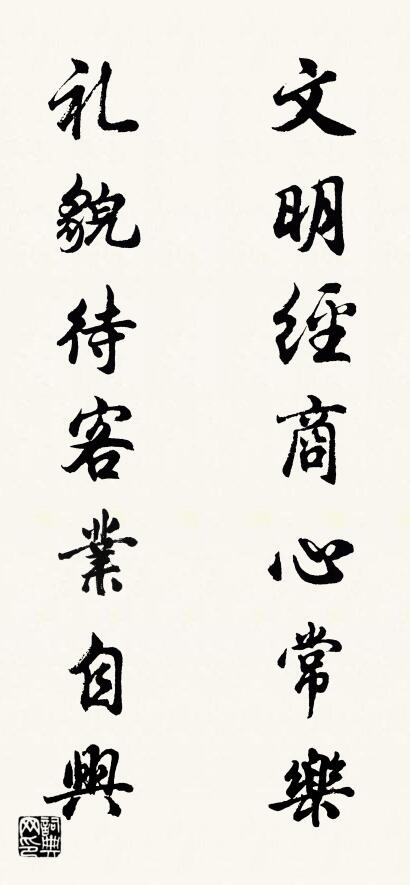 文明經商心常樂
礼貌待客業自興
詞典网印